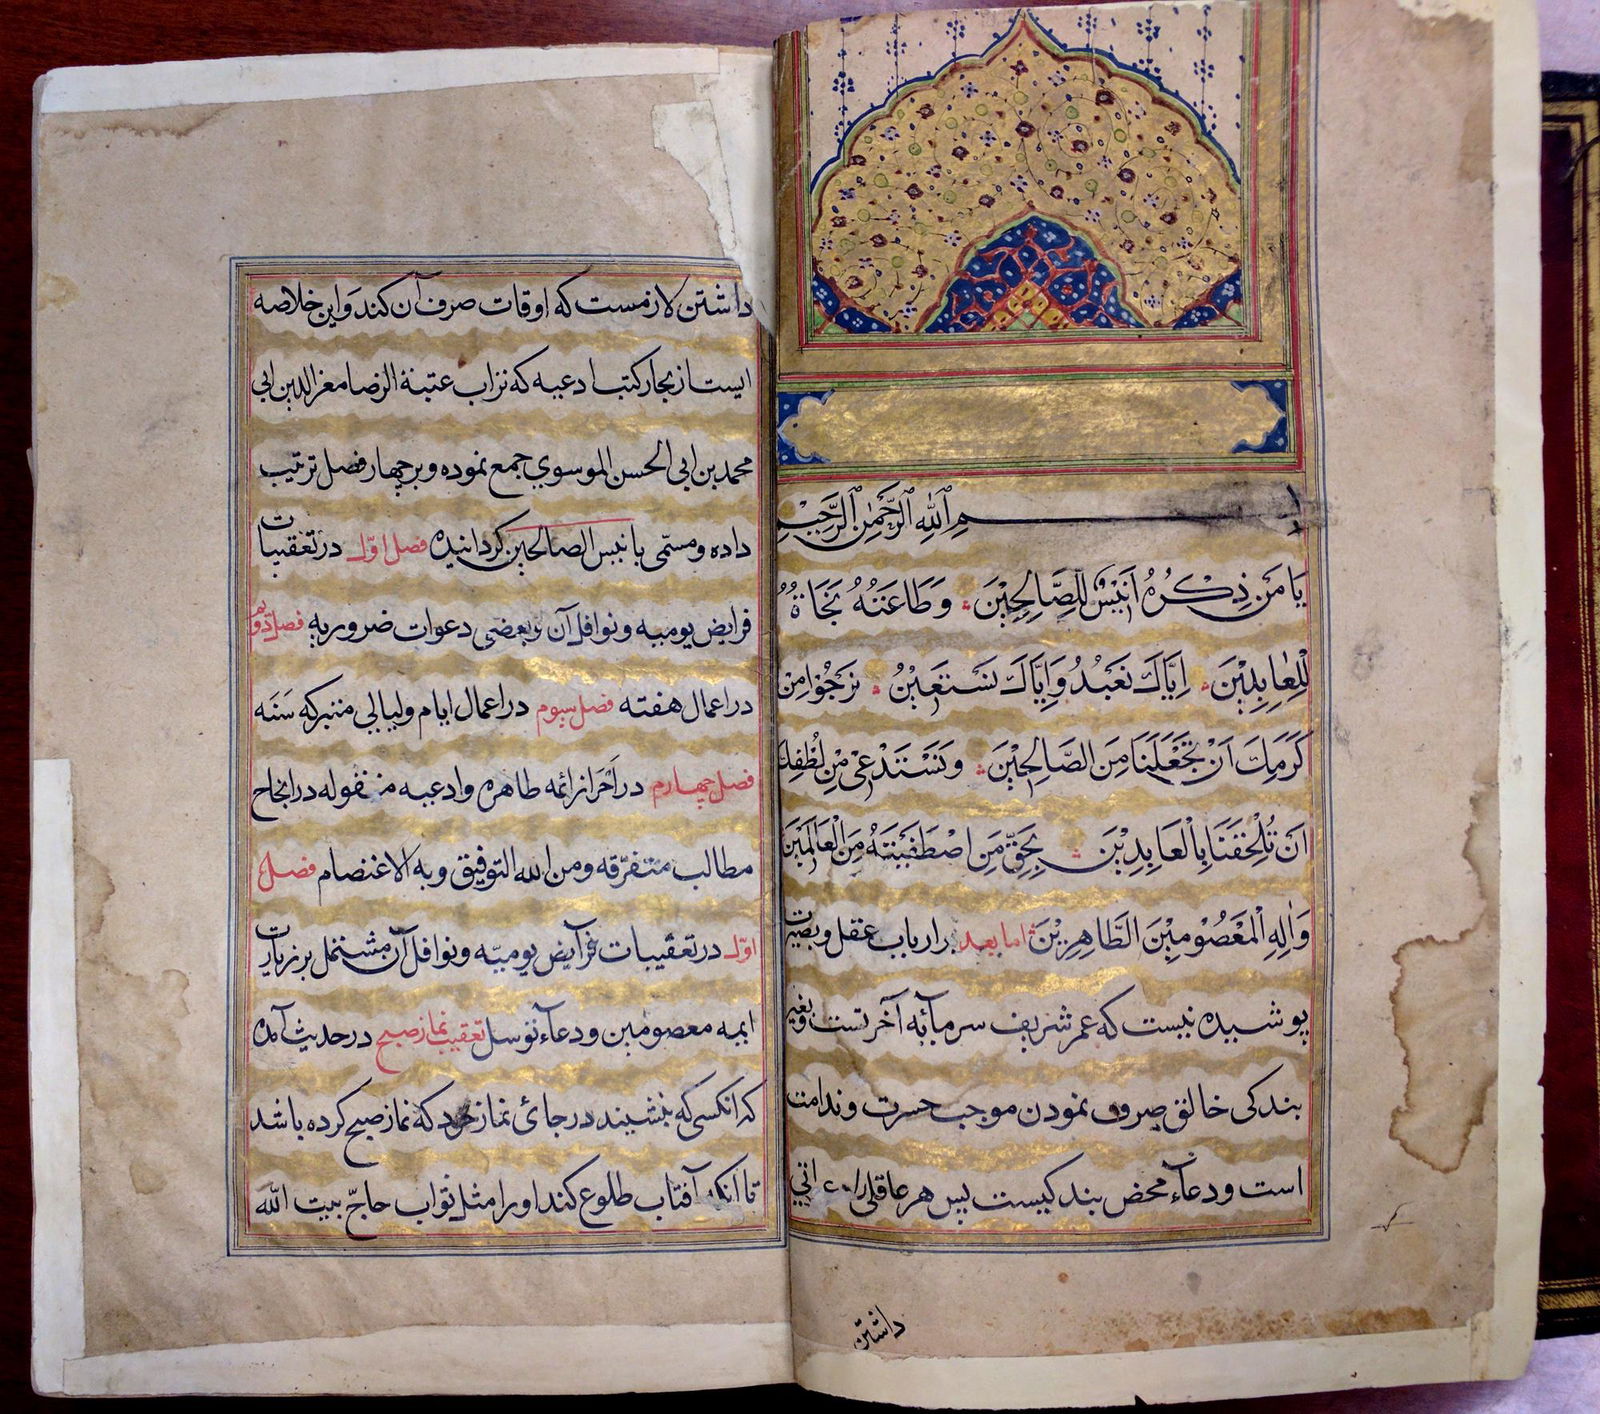 بسم الله الرحمن الرحيم
يَا مَن ذِكْرُهُ اَنِيْسٌ لِلصَّالِحِيْنَ وَ طَاعَتُهُ نَجَاةٌ
لِلْعٰابِدِيْنَ اِيَّاكَ نَعْبُدُ وَاِيَّاكَ نَسْتَعِيْنُ نَرْجُوْا مِن
كَرَمِكَ اَنْ تَجْعَلَنَا مِنَ الصَّالِحِيْنَ وَنَسْتَدْعِیْ مِن لُطْفِكَ
اَنْ تُلْحِقَنَا بِالْعَابِدِيْنَ بِحَقِّ مَنِ اصْطَفَيْتَهُ مِنَ الْعَالَمِيْنَ
وَاٰلِهِ الْمَعْصُوْمِيْنَ الطَّاهِرِيْنَ اما بعد بر ارباب عقل و بصیرت
پوشیده نیست که عمر شریف سرمایهٔ آخرتست و بغیر
بندکی خالق صرف نمودن موجب حسرت و ندامت
است و دعاء محض بندکیست پس هر عاقلی را
داشتن
داشتن لازمست که اوقات صرف آن کند و این خلاصه
ایست از بحار کتب ادعیه که تراب عتبة الرضا معز الدین ابی
محمد بن ابی الحسن الموسوي جمع نموده و بر چهار فصل ترتیب
داده و مسمّی بانیس الصالحین کردانیده فصل اوّل در تعقیبات
فرایض یومیه و نوافل آن و بعضی دعوات ضروریه فصل دویم
در اعمال هفته فصل سیوم در اعمال ایام و لیالی متبرکه سَنَه
فصل چهارم در اَحْراز ائمه طاهره و ادعیه منقوله در انجاح
مطالب متفرّقه و من الله التوفیق و به الاعتصام فصل
اوّل در تعقیبات فرآیض یومیّه و نوافل آن مشتمل بر زیارت
ایمه معصومین و دعاء توسل تعقیب نماز صبح در حدیث آمده
که انکسی که بنشیند در جائ نماز خود که نماز صبح کرده باشد
تا آنکه آفتاب طلوع کند او را مثل ثواب حاجّ بیت اللّه